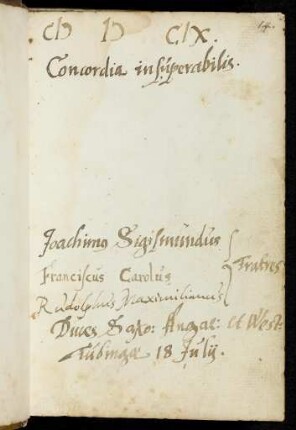 CIↃ IↃ CIX.
Concordia insuperabilis.
Joachimus Sigismundus
Franciscus Carolus
Rudolphus Maximilianus
Fratres
Duces Saxo: Angae: et West:
Tubingae 18 Julij.